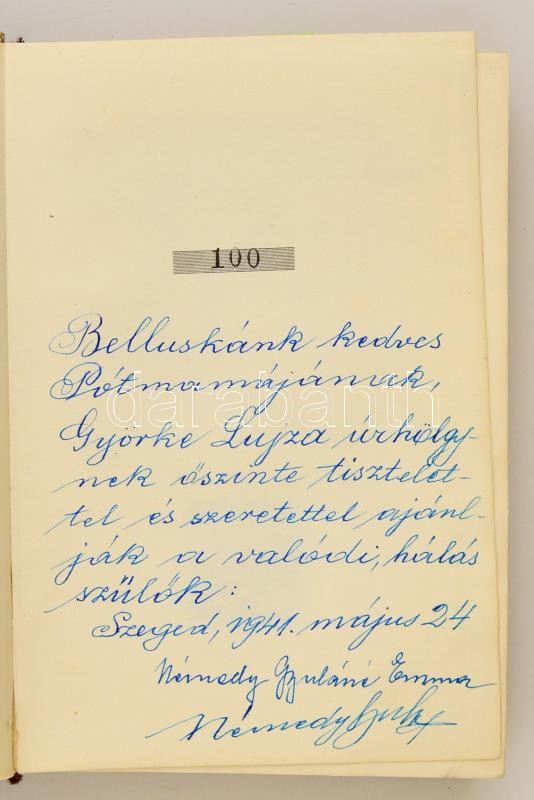 100
Belluskánk kedves
Pótmamájának,
darabanth
Györke Lujza úrhölgy-
nek őszinte tisztelet-
tel és szeretettel ajánl-
ják a valódi, hálás
szülők:
Szeged, 1941. május 24
Némedy Gyuláné Emma
Némedy Gyula